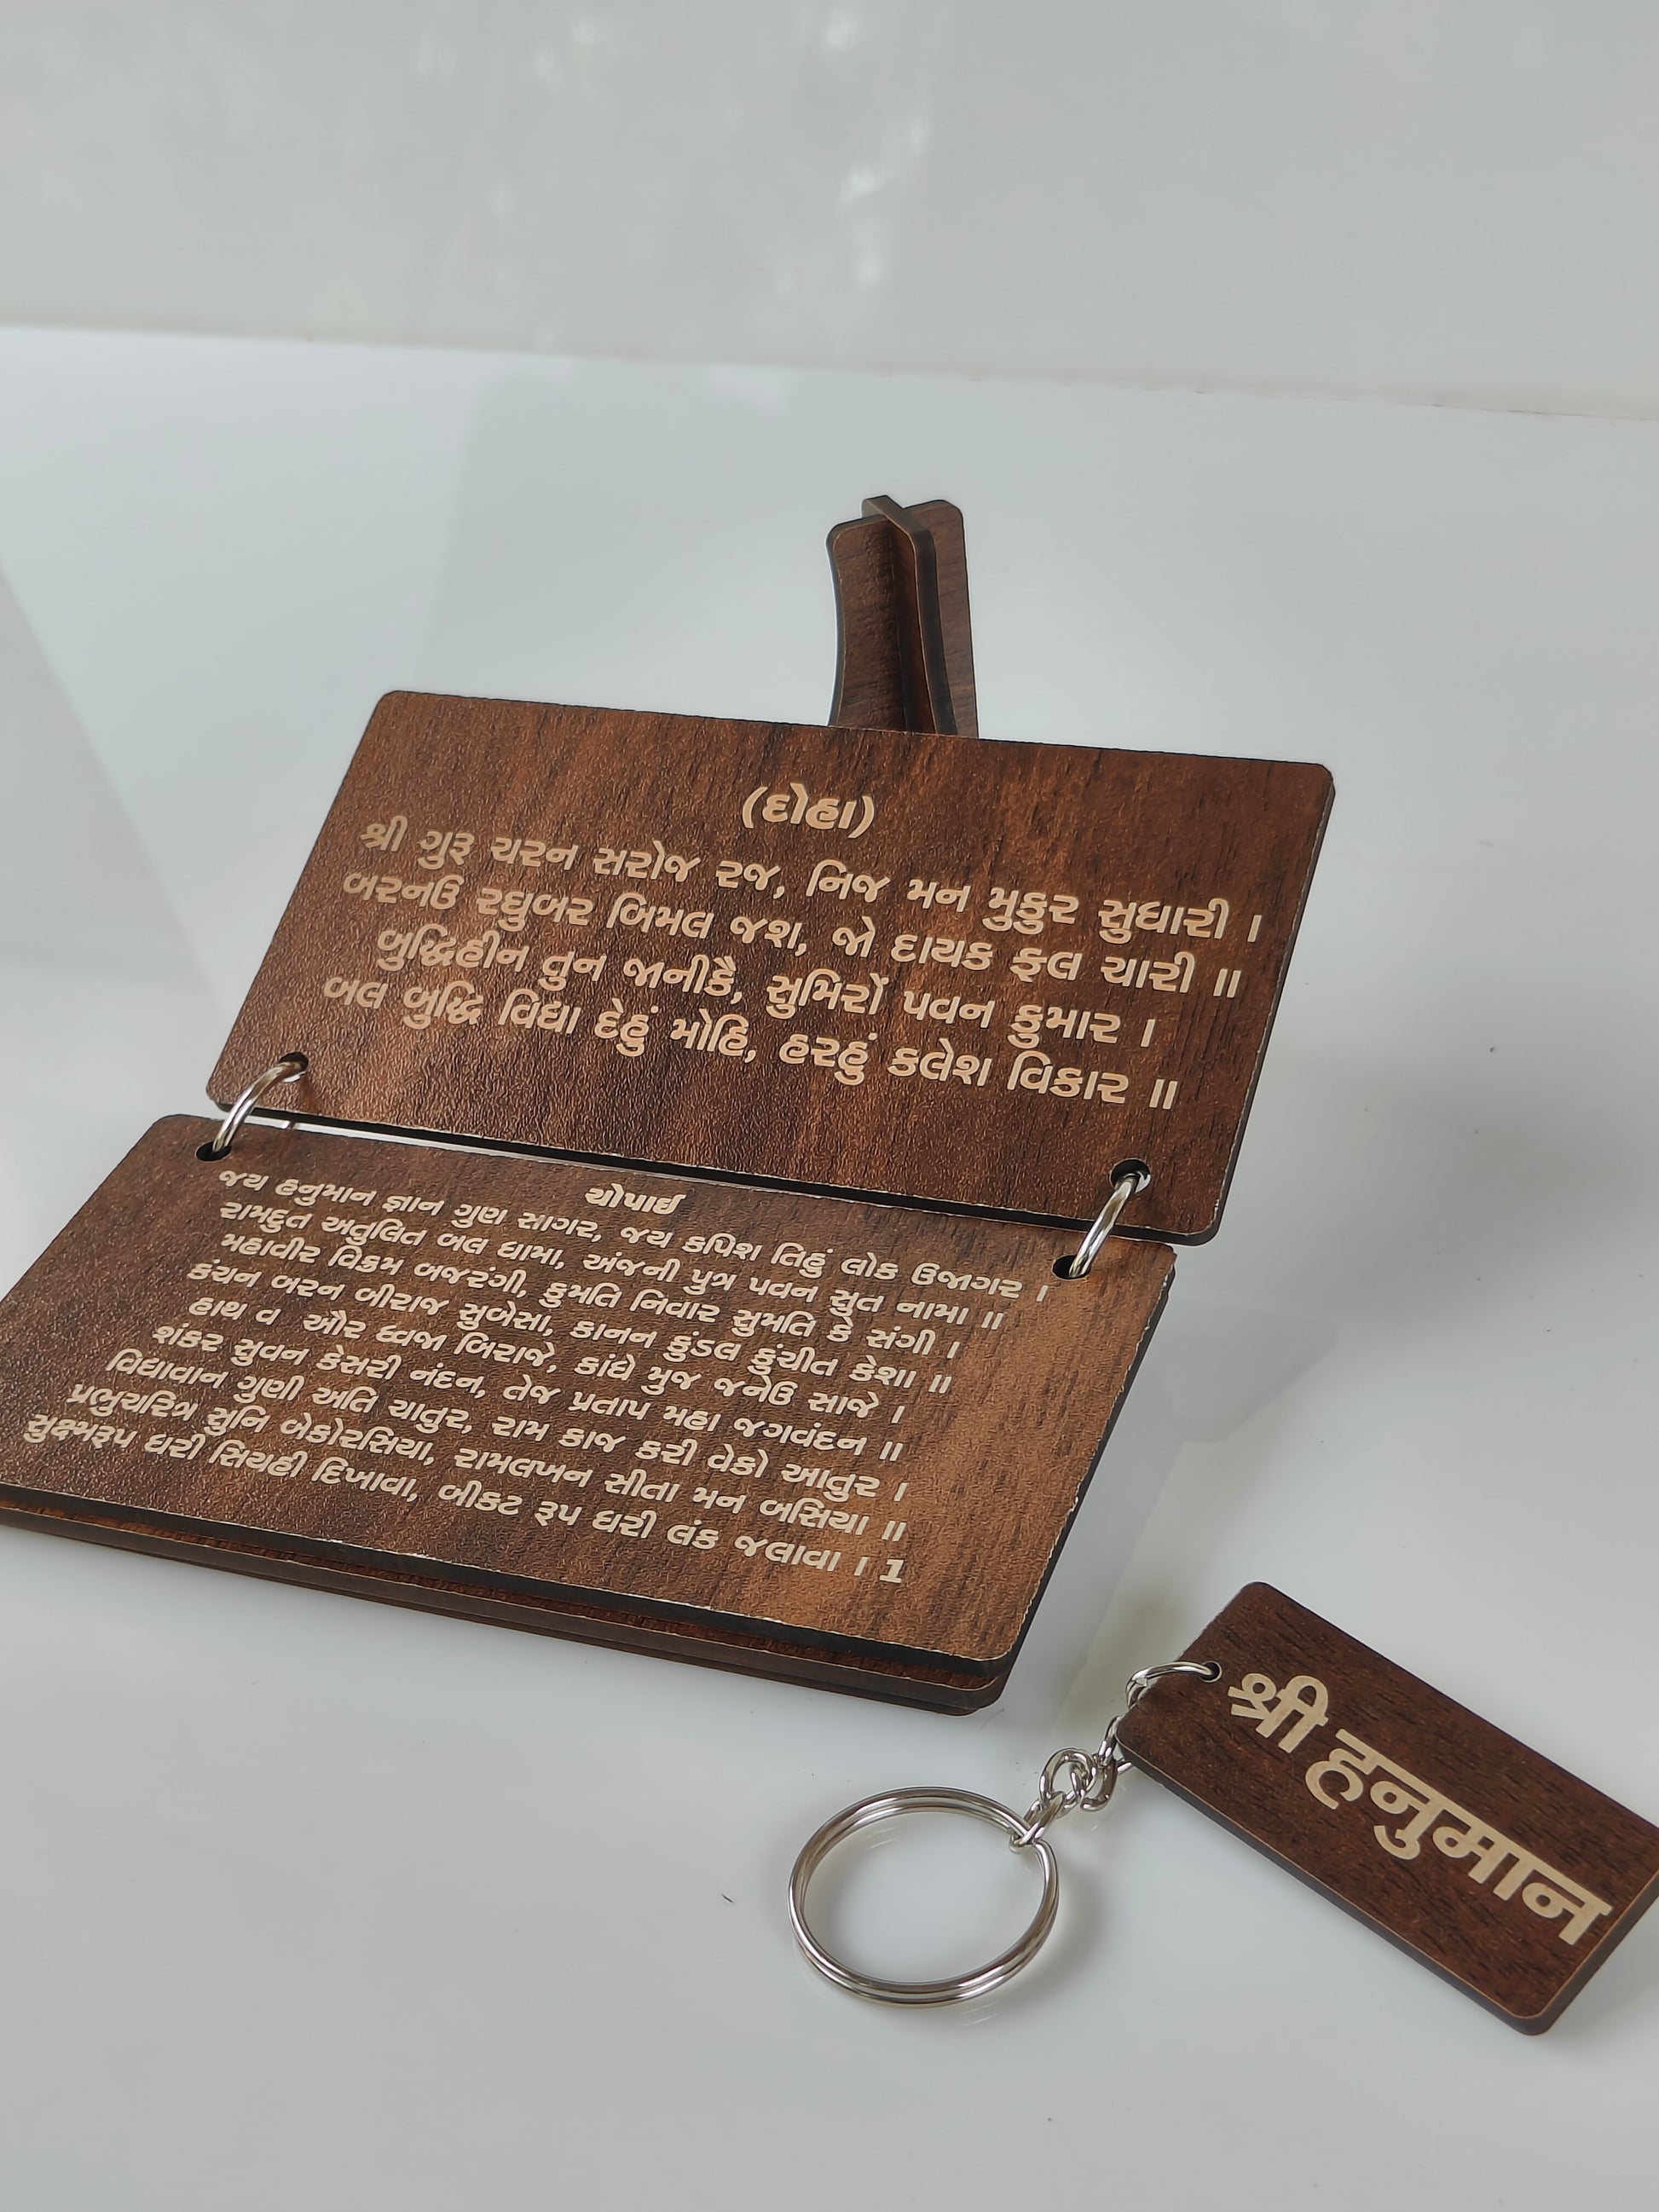 (દોહા)
શ્રી ગુરૂ ચરન સરોજ રજ, નિજ મન મુકુર સુધારી ।
બરનઉ રઘુબર બિમલ જશ, જો દાયક ફલ ચારી ॥
બુદ્ધિહીન તુન જાનીકૈ, સુમિરોં પવન કુમાર ।
બલ બુદ્ધિ વિદ્યા દેહું મોહિ, હરહું કલેશ વિકાર ॥
ચોપાઈ
જય હનુમાન જ્ઞાન ગુણ સાગર, જય કપિશ તિહું લોક ઉજાગર ।
રામદુત અતુલિત બલ ધામા, અંજની પુત્ર પવન સુત નામા ॥
મહાવીર વિક્રમ બજરંગી, કુમતિ નિવાર સુમતિ કે સંગી ।
કંચન બરન બીરાજ સુબેસા, કાનન કુંડલ કુંચીત કેશા ॥
હાથ વ ઔર ધ્વજા બિરાજે, કાંધે મુજ જનેઉ સાજે ।
શંકર સુવન કેસરી નંદન, તેજ પ્રતાપ મહા જગવંદન ॥
વિદ્યાવાન ગુણી અતિ ચાતુર, રામ કાજ કરી વેકો આતુર ।
પ્રભુચરિત્ર સુનિ બેકોરસિયા, રામલખન સીતા મન બસિયા ॥
સુક્ષ્મરૂપ ધરી સિયહી દિખાવા, બીકટ રૂપ ધરી લંક જલાવા । 1
श्री हनुमान